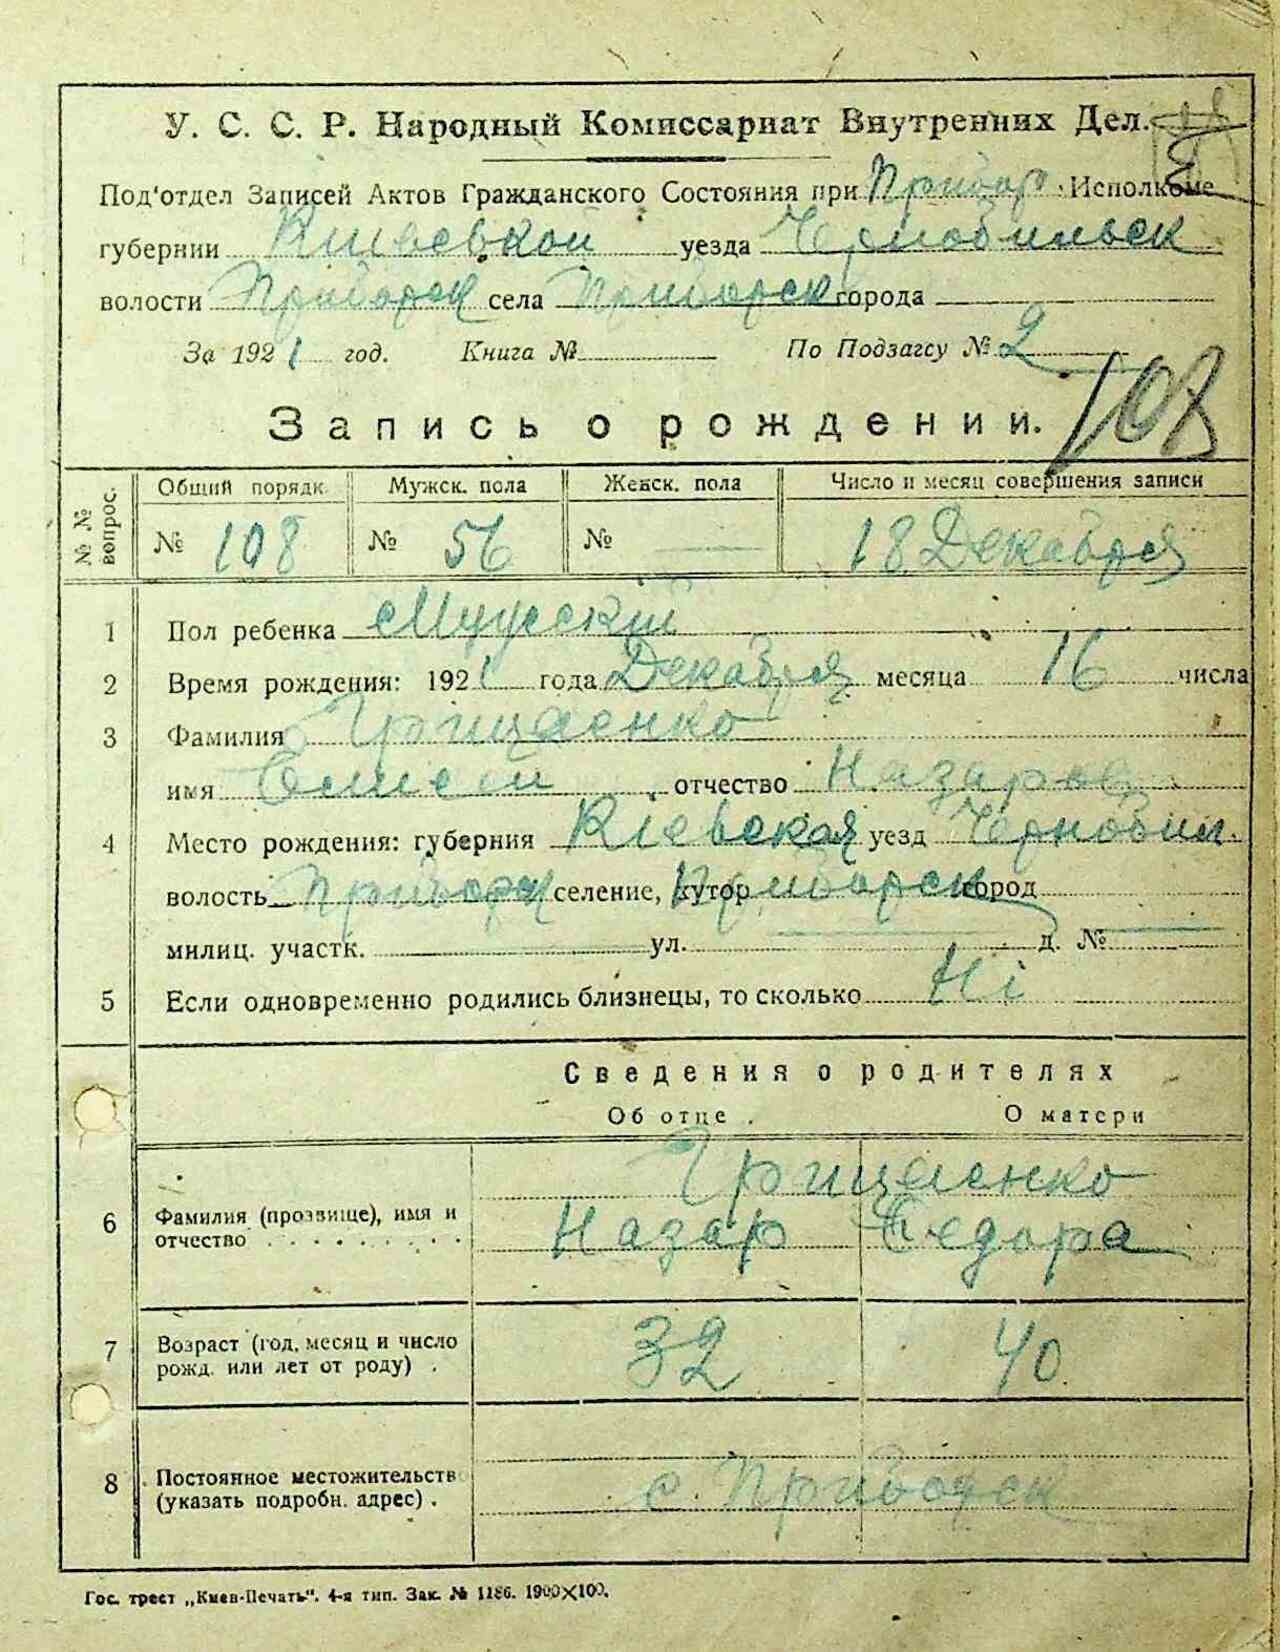 У. С. С. Р. Народный Комиссариат Внутренних Дел.
Под'отдел Записей Актов Гражданского Состояния при Прибор. Исполкоме
губернии Киевской уезда Чернобильск
волости Приборск села Приборск города
За 1921 год. Книга № По Подзагсу № 2
108
Запись о рождении.
№ № вопрос. Общий порядк. Мужск. пола Женск. пола Число и месяц совершения записи
№ 108 № 56 № 18 Декабря
1 Пол ребенка Мужский
2 Время рождения: 1921 года Декабря месяца 16 числа
3 Фамилия Грищенко
имя отчество Назаров
4 Место рождения: губерния Кіевская уезд Чернобил.
волость Приборск селение, хутор Приборск город
милиц. участк. ул. д. №
5 Если одновременно родились близнецы, то сколько Ні
Сведения о родителях
Об отце. О матери
Грищенко
6 Фамилия (прозвище), имя и отчество Назар Федора
7 Возраст (год, месяц и число рожд. или лет от роду). 32 40
8 Постоянное местожительств (указать подробн. адрес). с. Приборск
Гос. трест „Киев-Печать“. 4-я тип. Зак. № 1186. 1900×100.